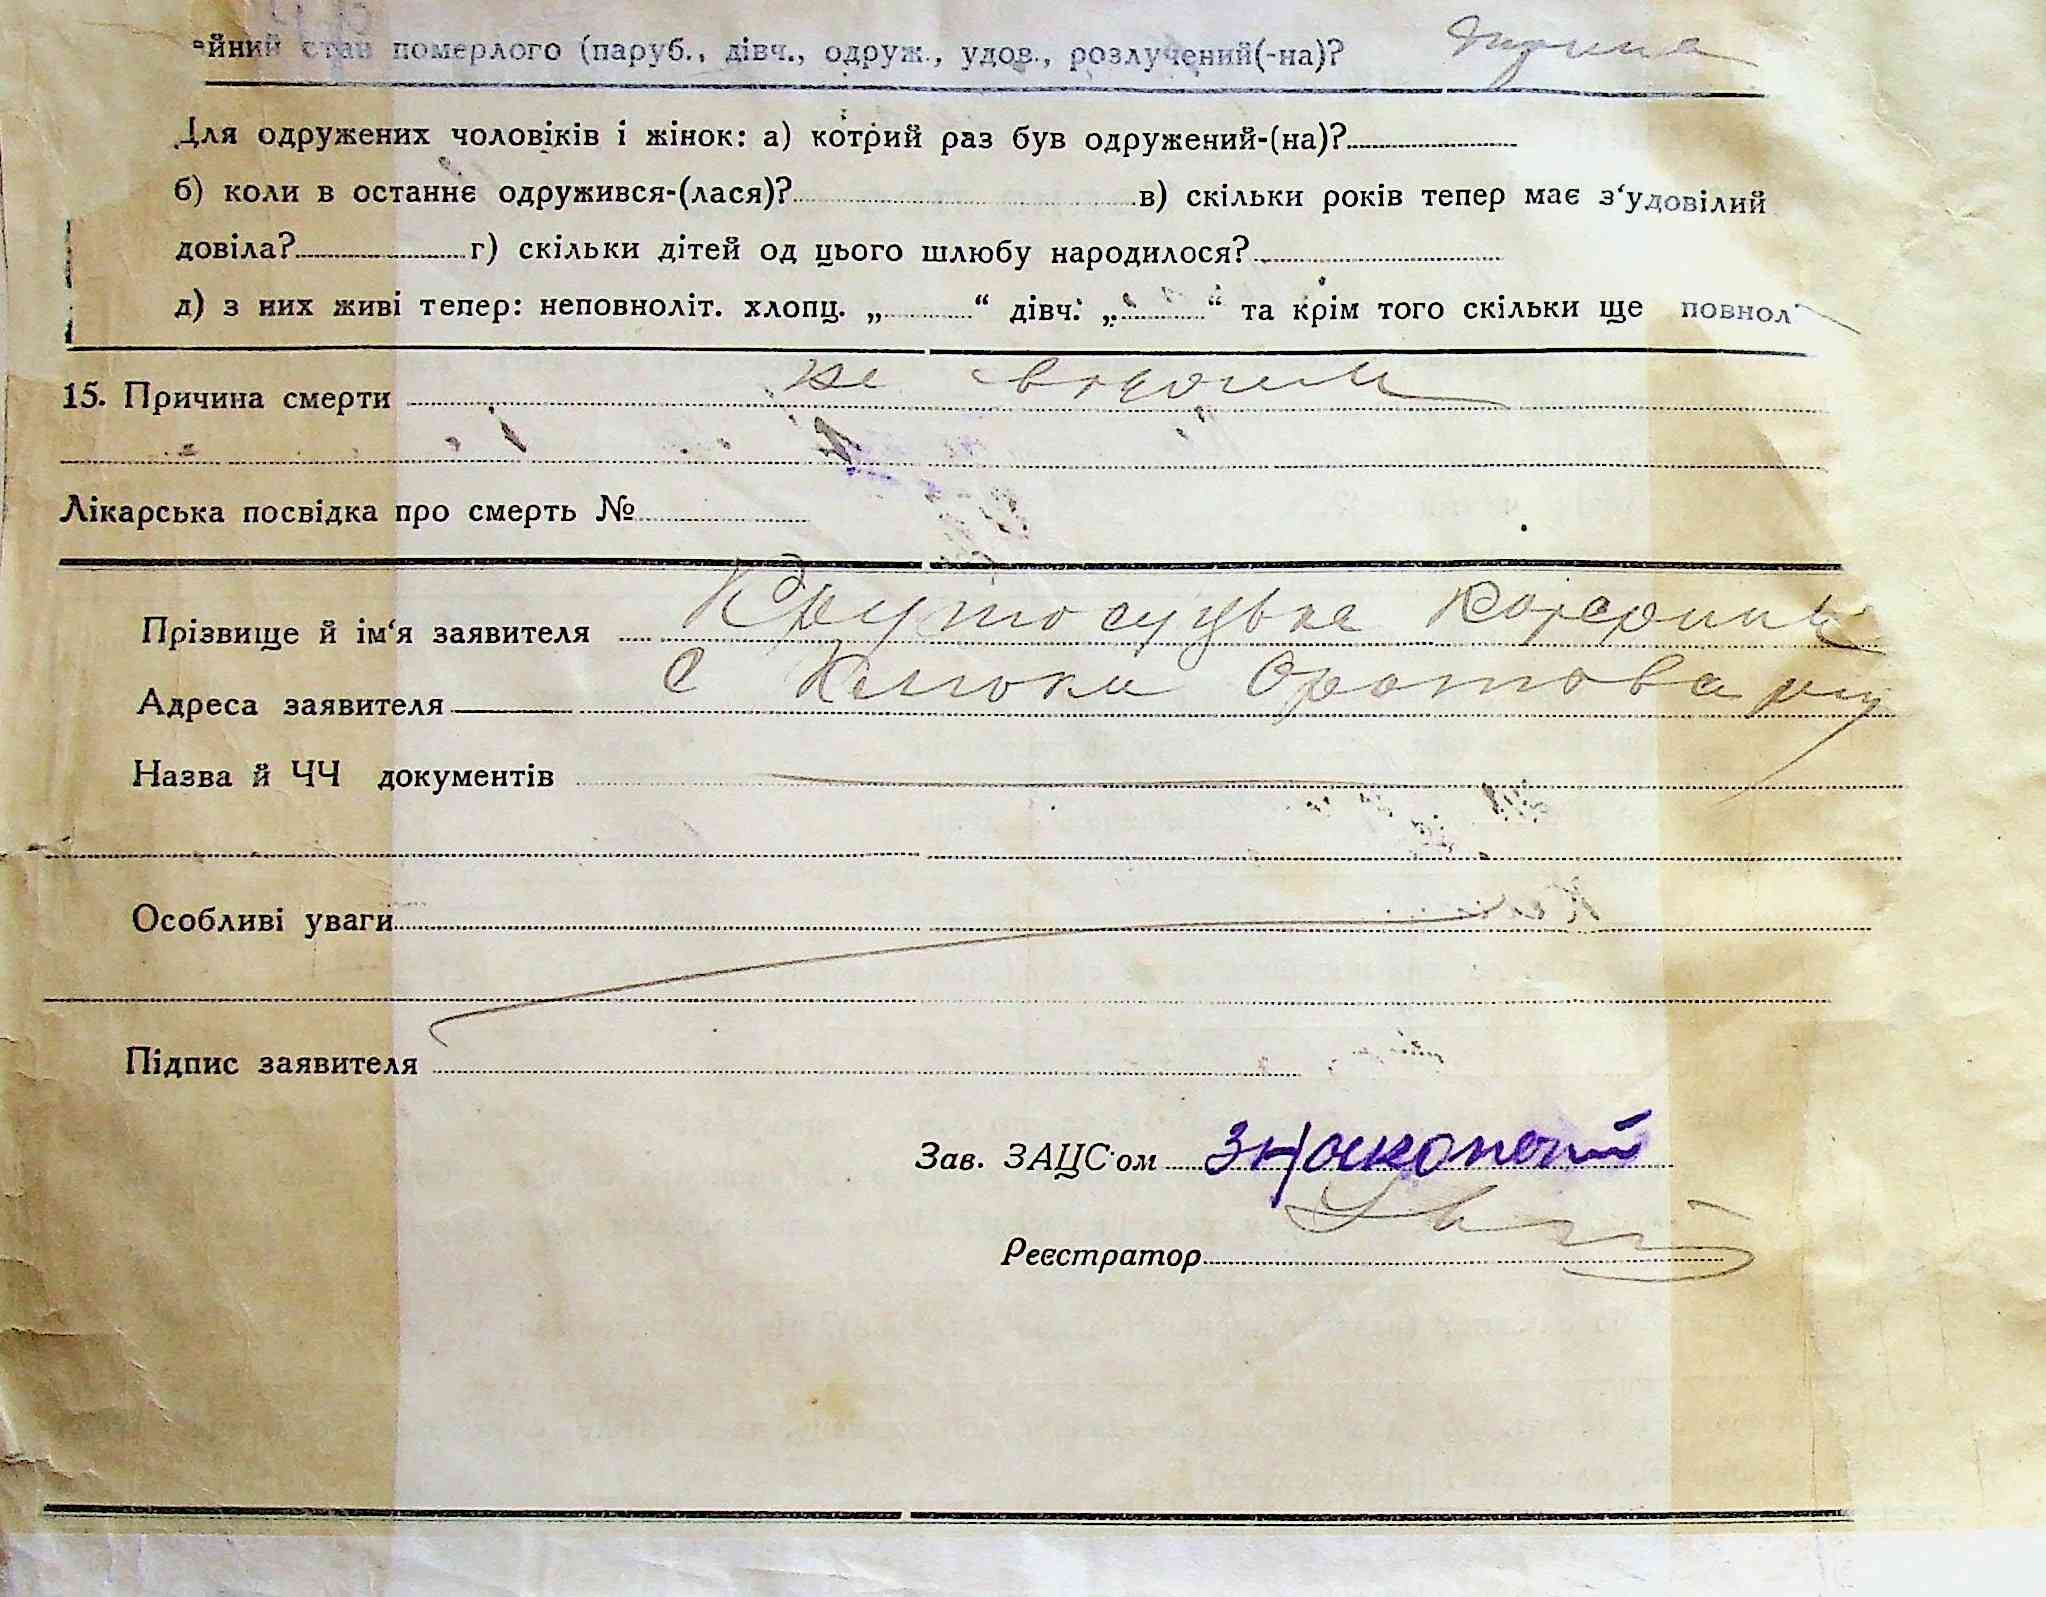 ейний стан померлого (паруб., дівч., одруж., удов., розлучений(-на)?
Для одружених чоловіків і жінок: а) котрий раз був одружений-(на)?
б) коли в останнє одружився-(лася)? в) скільки років тепер має з‘удовілий
довіла? г) скільки дітей од цього шлюбу народилося?
д) з них живі тепер: неповноліт. хлопц. „ “ дівч. „ “ та крім того скільки ще повнол
15. Причина смерти не відоми
Лікарська посвідка про смерть №
Прізвище й ім‘я заявителя Крутосуцька Катерина
Адреса заявителя с Оратова
Назва й ЧЧ документів
Особливі уваги
Підпис заявителя
Зав. ЗАЦС‘ом
Реєстратор